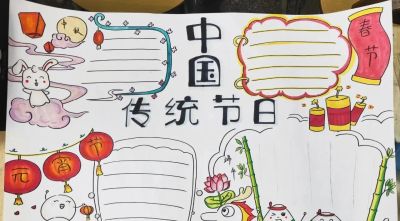 中秋
中国
传统节日
春节
元宵节